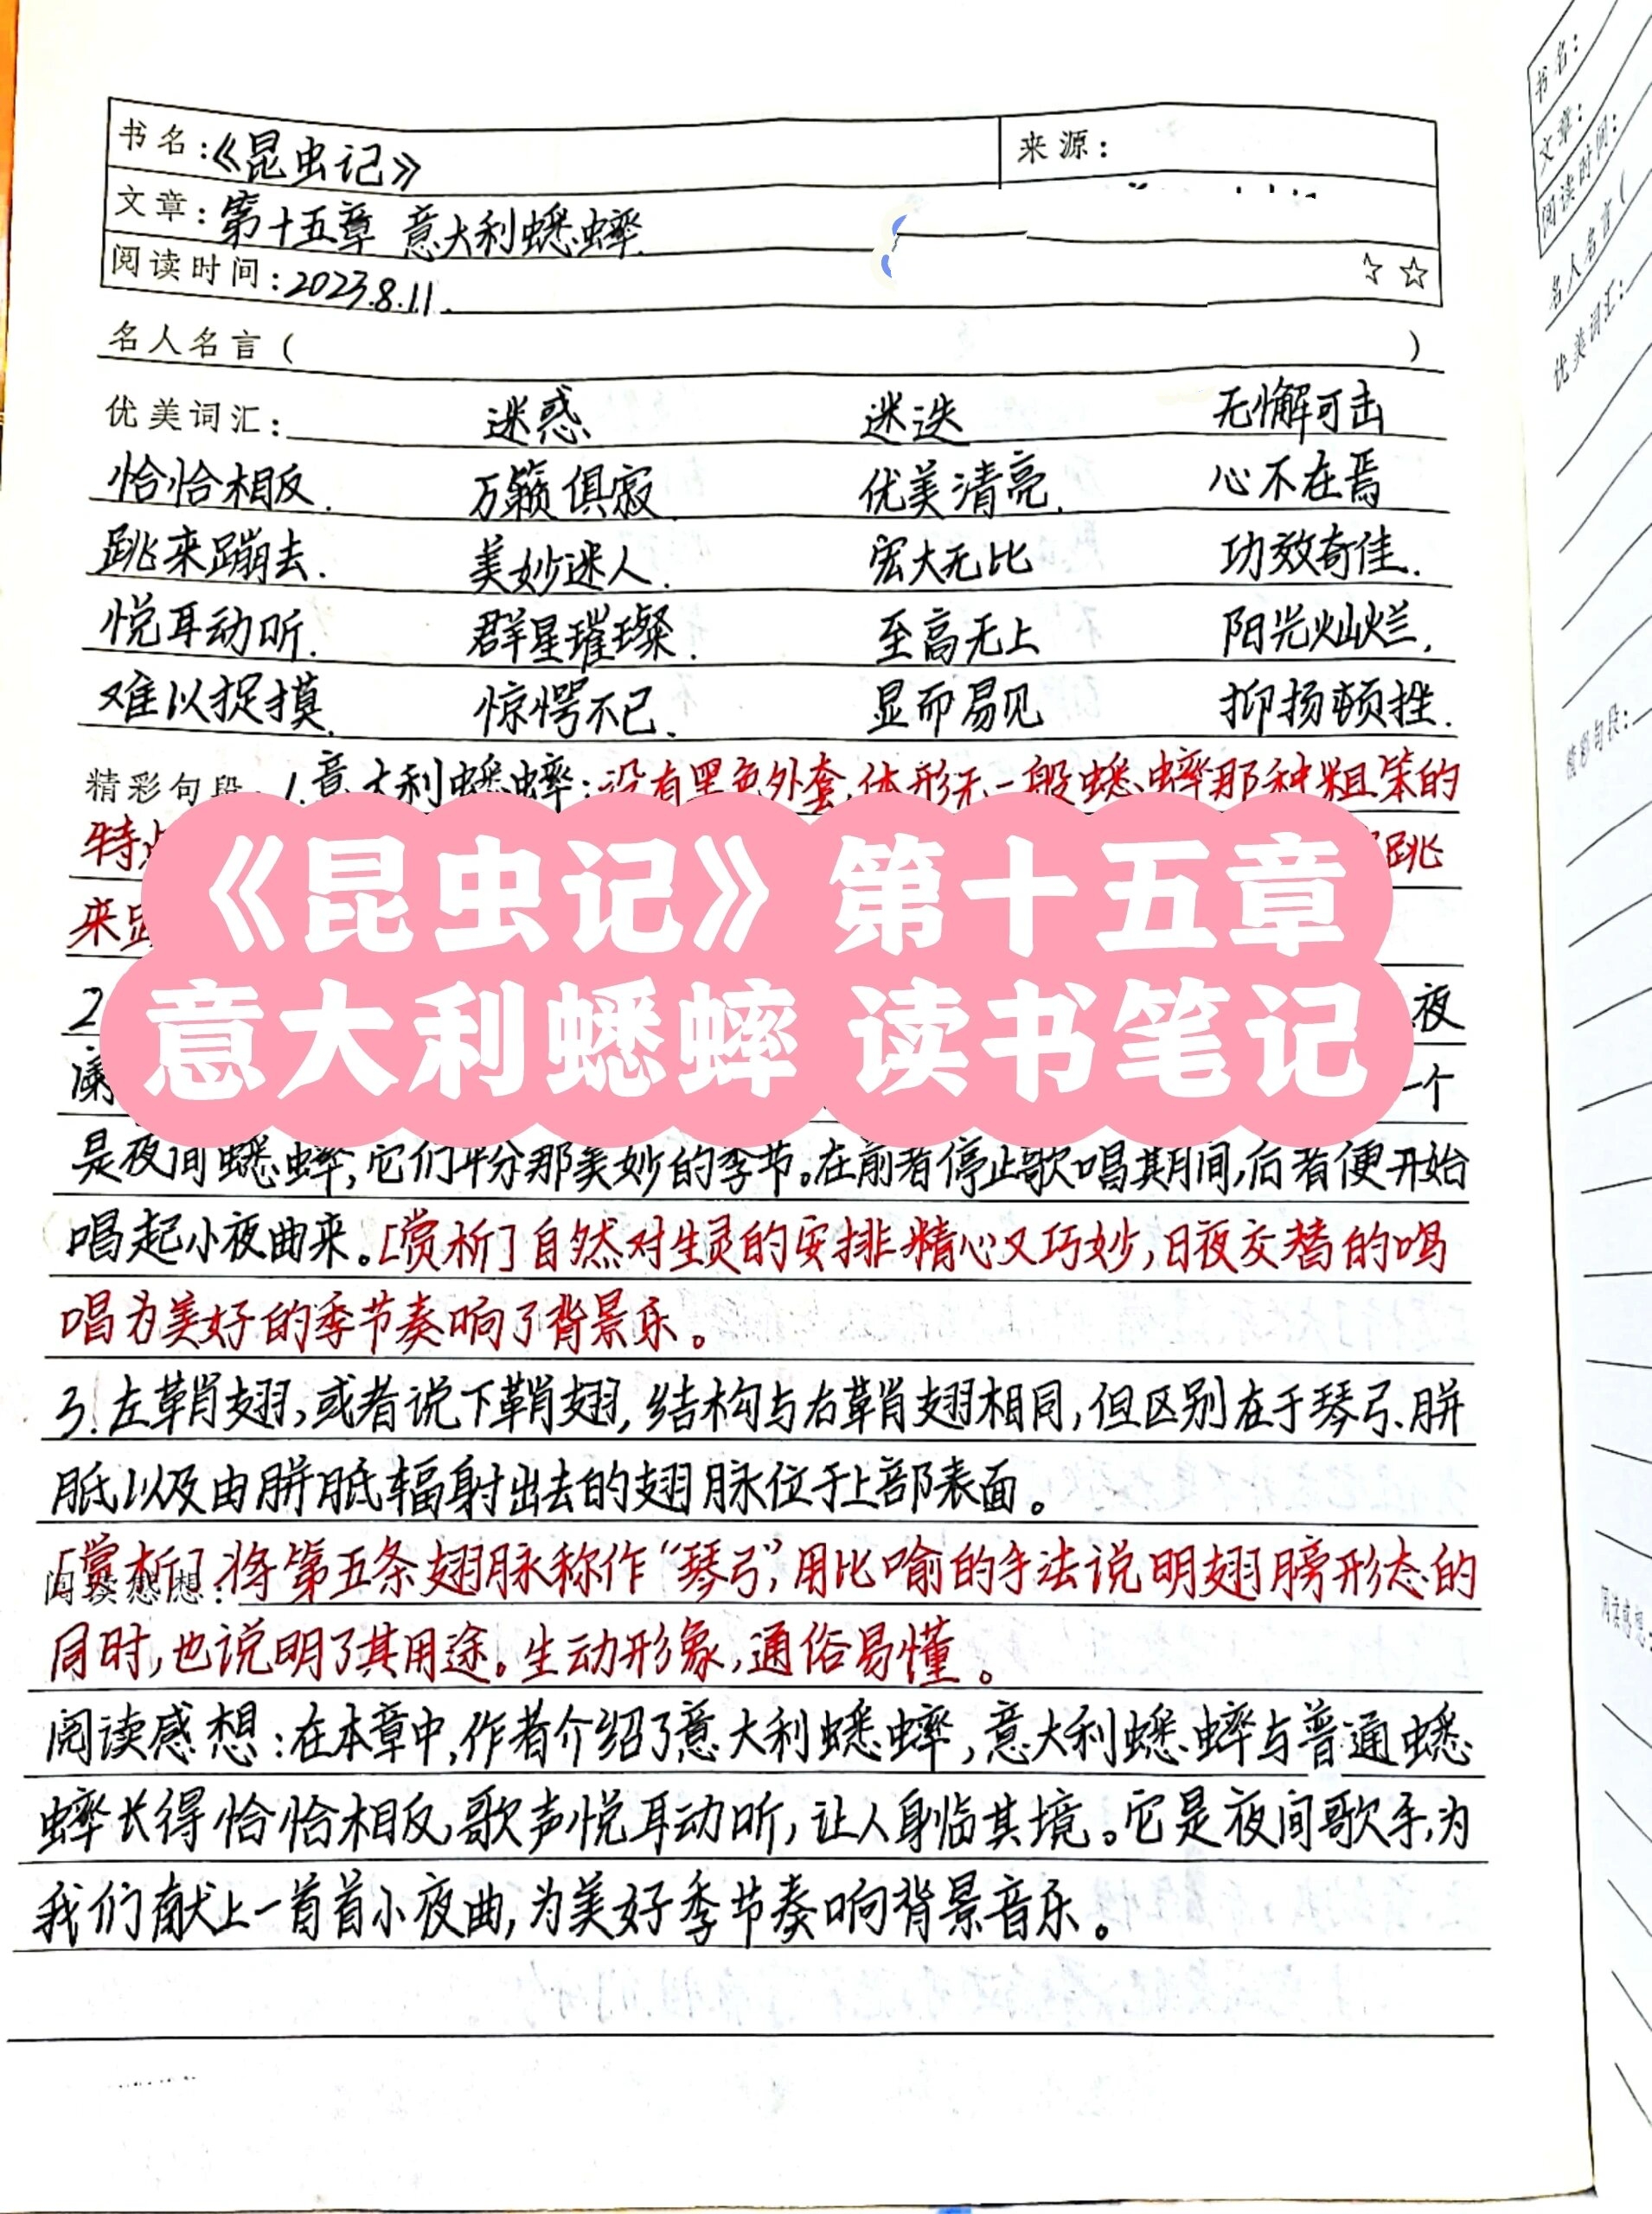 书名:《昆虫记》 来源:
文章:第十五章 意大利蟋蟀.
阅读时间:2023.8.11.
☆☆
名人名言( )
优美词汇: 迷惑 迷迭 无懈可击
恰恰相反. 万籁俱寂. 优美清亮. 心不在焉
跳来蹦去. 美妙迷人. 宏大无比 功效奇佳.
悦耳动听. 群星璀璨. 至高无上 阳光灿烂.
难以捉摸. 惊愕不已. 显而易见 抑扬顿挫.
精彩句段:1.意大利蟋蟀:没有黑色外套,体形无一般蟋蟀那种粗笨的
特 跳
来
《昆虫记》第十五章
意大利蟋蟀 读书笔记
2 夜
一个
是夜间蟋蟀,它们平分那美妙的季节。在前者停止歌唱期间,后者便开始
唱起小夜曲来。[赏析]自然对生灵的安排精心又巧妙,日夜交替的鸣
唱为美好的季节奏响了背景乐。
3.左鞘翅,或者说下鞘翅,结构与右鞘翅相同,但区别在于琴弓、胼
胝以及由胼胝辐射出去的翅脉位于上部表面。
阅读感想:
[赏析]将第五条翅脉称作“琴弓”,用比喻的手法说明翅膀形态的
同时,也说明了其用途。生动形象,通俗易懂。
阅读感想:在本章中,作者介绍了意大利蟋蟀,意大利蟋蟀与普通蟋
蟀长得恰恰相反,歌声悦耳动听,让人身临其境。它是夜间歌手,为
我们献上一首首小夜曲,为美好季节奏响背景音乐。
书名:
文章:
阅读时间:
名人名言(
优美词汇:
精彩句段:
阅读感想: